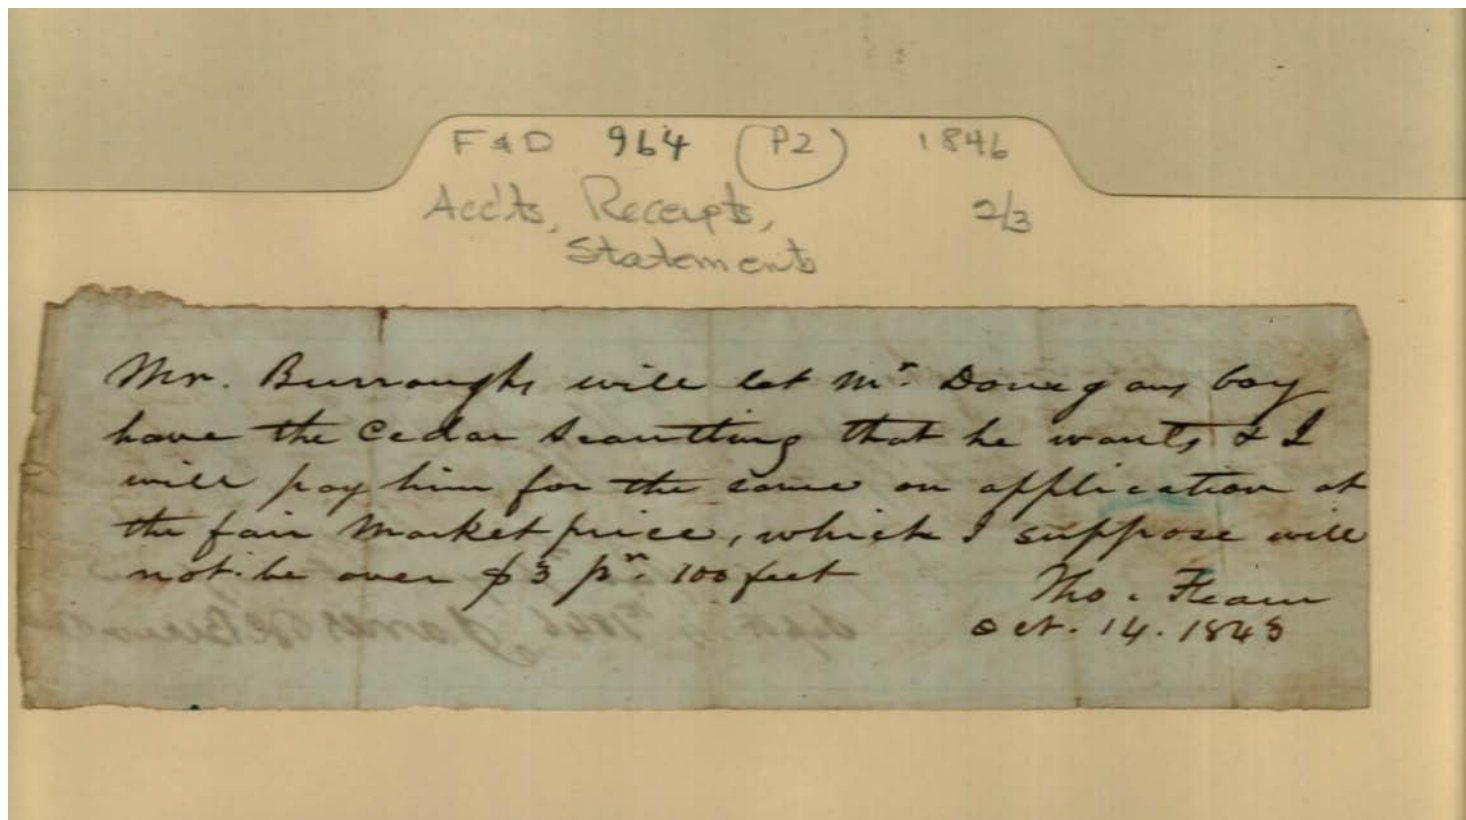 F & D 964 (P2) 1846
Acc'ts, Receipts, 2/3
Statements
Mr. Burroughs will let Mr. Donegans boy
have the Cedar Scantting that he wants & I
will pay him for the same on application at
the fair Market price, which I suppose will
not be over $3 pr. 100 feet
Tho. Fearn
Oct. 14. 1843